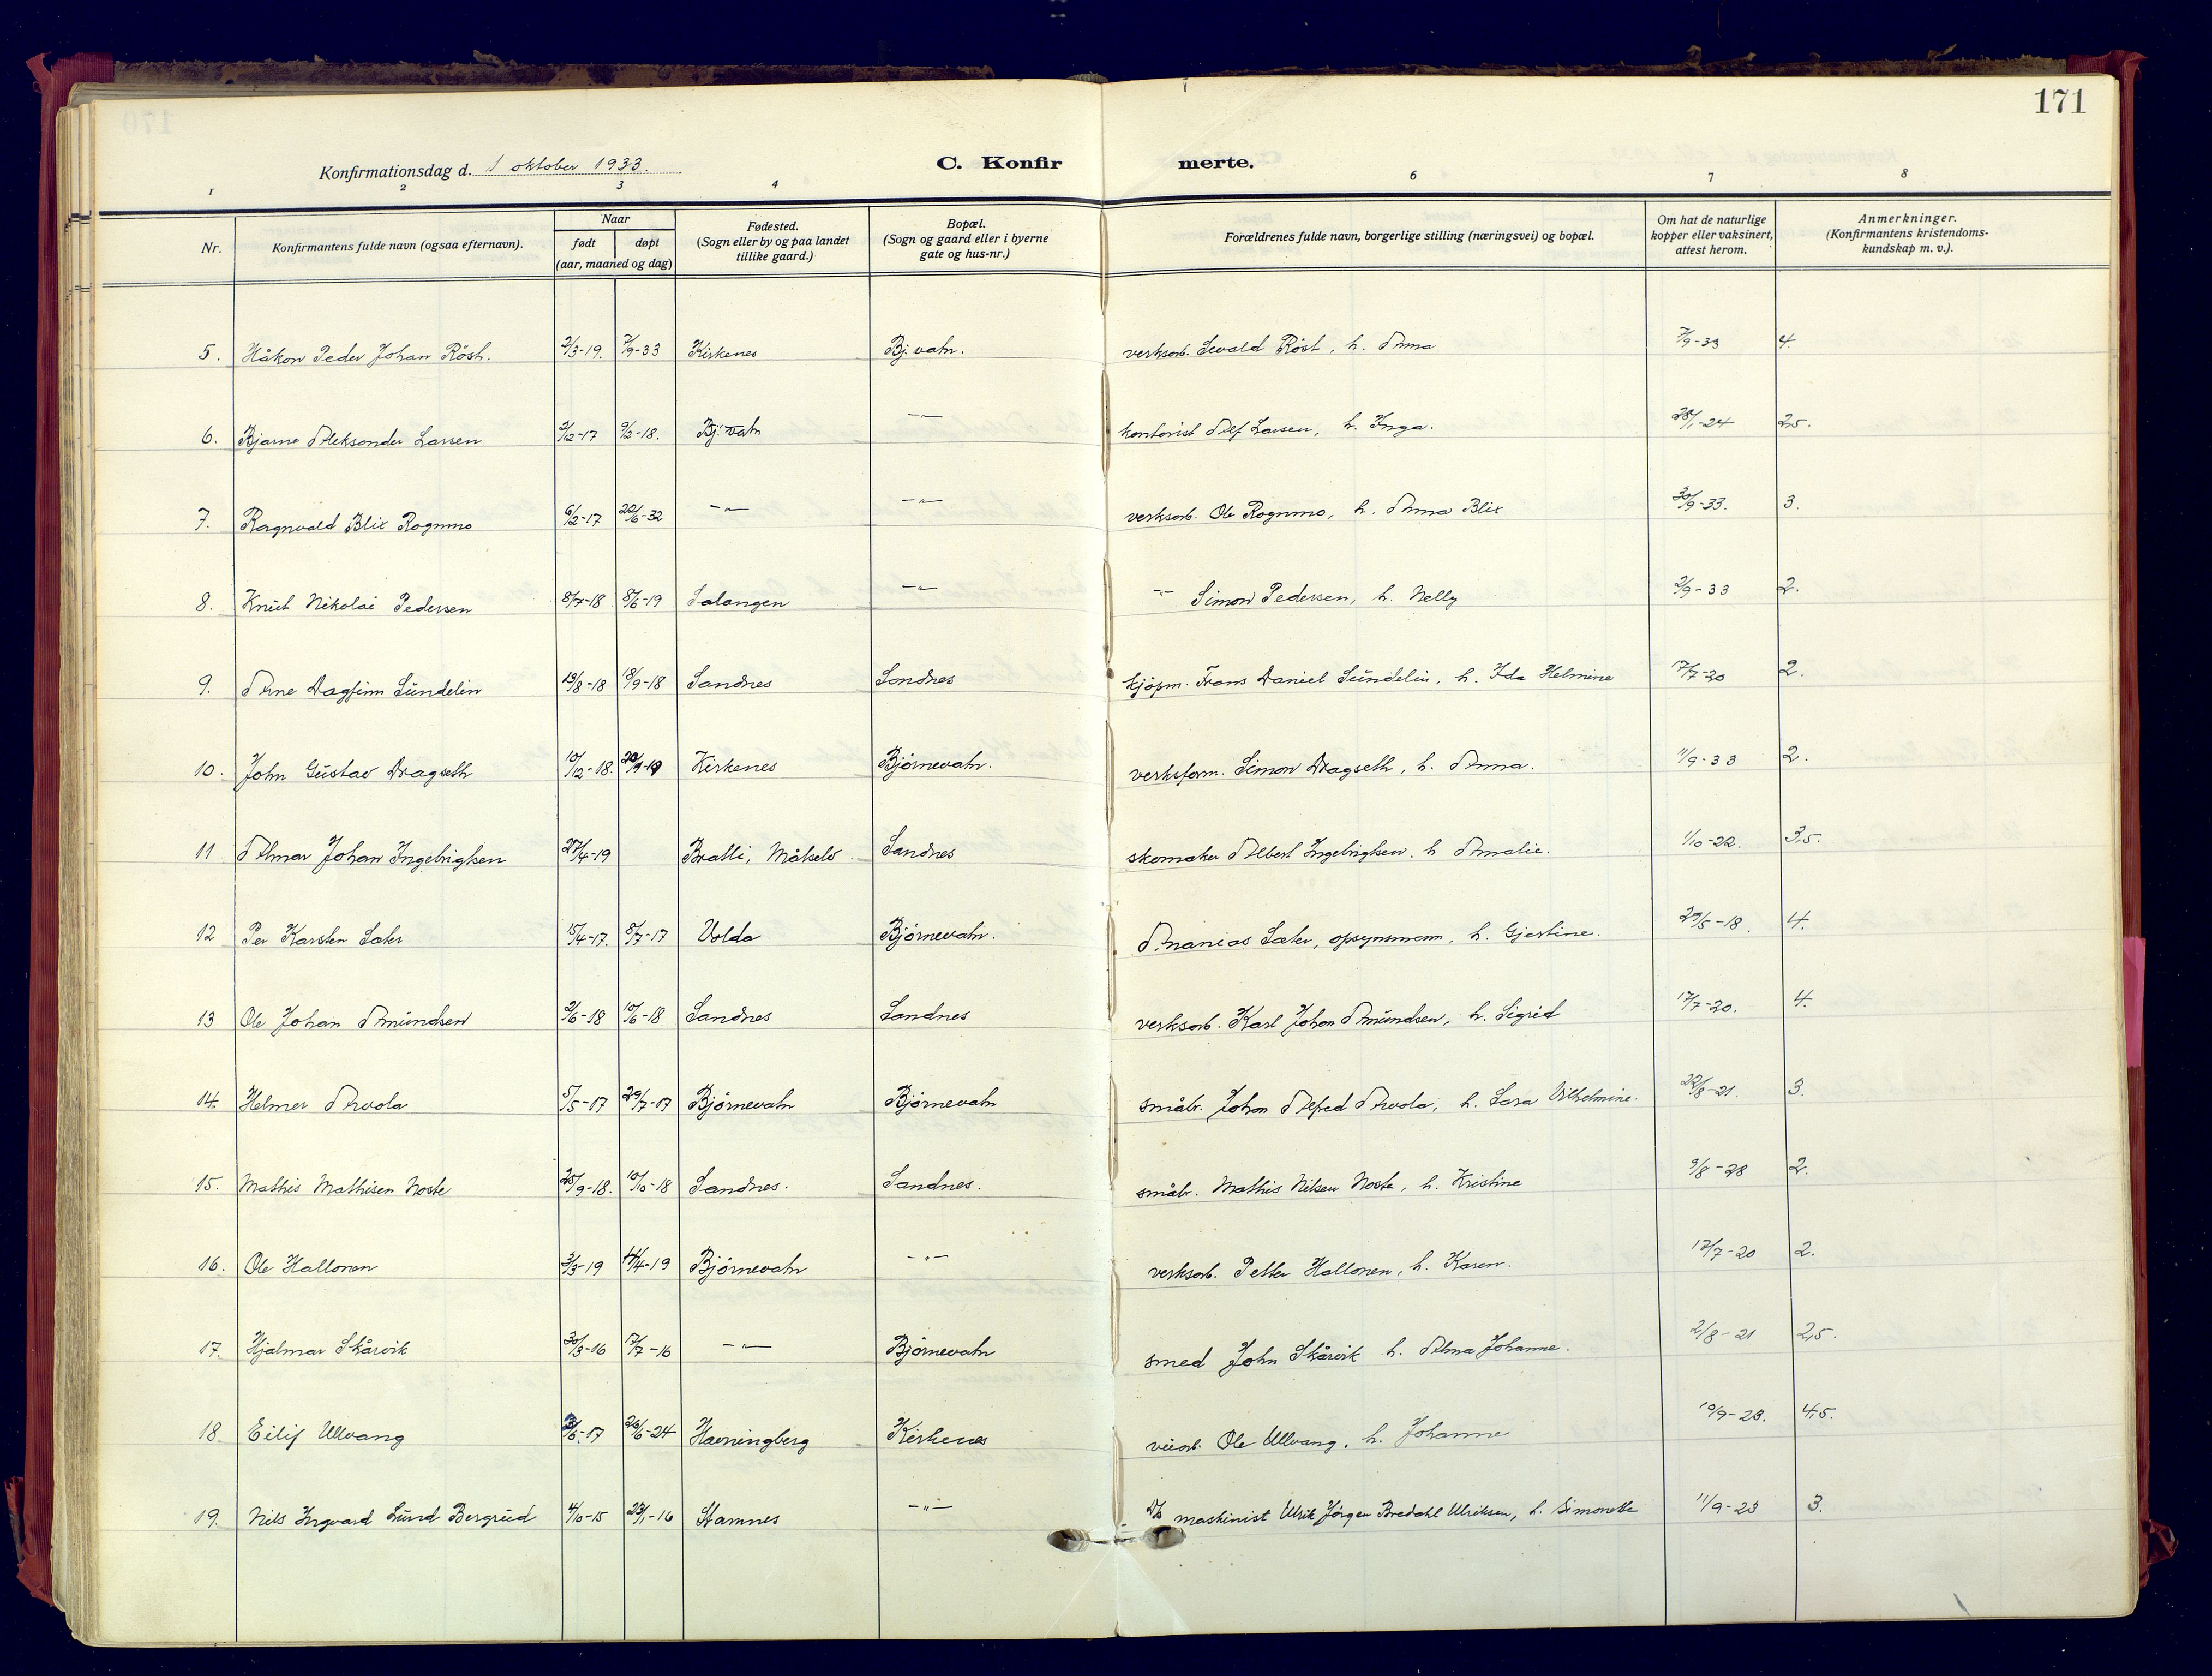 171
Konfirmationsdag d. 1 oktober 1933. C. Konfirmerte.
1 2 3 4 6 7 8
Nr. Konfirmantens fulde navn (ogsaa efternavn). Naar født døpt (aar, maaned og dag) Fødested. (Sogn eller by og paa landet tillike gaard.) Bopæl. (Sogn og gaard eller i byerne gate og hus-nr.) Forældrenes fulde navn, borgerlige stilling (næringsvei) og bopæl. Om hat de naturlige kopper eller vaksinert, attest herom. Anmerkninger. (Konfirmantens kristendoms-kundskap m. v.).
5. Håkon Peder Johan Röst. 2/3-19. 7/9-33 Kirkenes Bj.vatn. verksarb. Sevald Röst, h. Anna 7/9-33 4.
6. Bjarne Aleksander Larsen 2/12-17 9/2-18. Bj.vatn -"- kontorist Alf Larsen, h. Inga. 28/1-24 2,5.
7. Ragnvald Blix Rognmo 6/2-17 22/6-32 -"- -"- verksarb. Ole Rognmo, h. Anna Blix 30/9-33. 3.
8. Knut Nikolai Pedersen 8/7-18 8/6-19 Salangen -"- -"- Simon Pedersen, h. Nelly 2/9-33 2.
9. Arne Dagfinn Sundelin 19/8-18 18/9-18 Sandnes Sandnes kjöpm. Frans Daniel Sundelin, h. Ida Helmine 17/7-20 2.
10. John Gustav Dragseth 10/12-18. 20/9-19 Kirkenes Björnevatn. verksform. Simon Dragseth, h. Anna. 11/9-33 2.
11 Almar Johan Ingebrigtsen 27/4-19 Bratli, Målselv. Sandnes skomaker Albert Ingebrigtsen, h. Amalie. 1/10-22. 3,5.
12 Per Karsten Sæter 15/4-17. 8/7-17 Volda Björnevatn. Ananias Sæter, opsynsmann, h. Gjertine. 29/5-18. 4.
13 Ole Johan Amundsen 2/6-18 10/6-18 Sandnes Sandnes verksarb. Karl Johan Amundsen, h. Sigrid 17/7-20. 4.
14. Helmer Arvola 5/5-17 29/7-17 Björnevatn Björnevatn småbr. Johan Alfred Arvola, h. Sara Vilhelmine. 22/8-21. 3.
15. Mathis Mathisen Noste 25/9-18. 10/10-18 Sandnes. Sandnes. småbr. Mathis Nilsen Noste, h. Kristine 9/8-28 2.
16. Ole Hallonen 3/3-19 14/4-19 Björnevatn -"- verksarb. Petter Hallonen, h. Karen. 17/7-20 2.
17. Hjalmar Skårvik 30/3-16 17/7-16 -"- Björnevatn smed John Skårvik h. Alma Johanne. 2/8-21 2,5.
18 Eilif Ullvang /6-17 26/6-24 Havningberg Kirkenes veiarb. Ole Ullvang, h. Johanne 10/9-23. 4,5.
19. Nils Ingvard Lund Bergrud 4/10-15 23/1-16 Stamnes -"- maskinist Ulrik Jörgen Bredahl Ulriksen, h. Simonette 11/9-23 3.